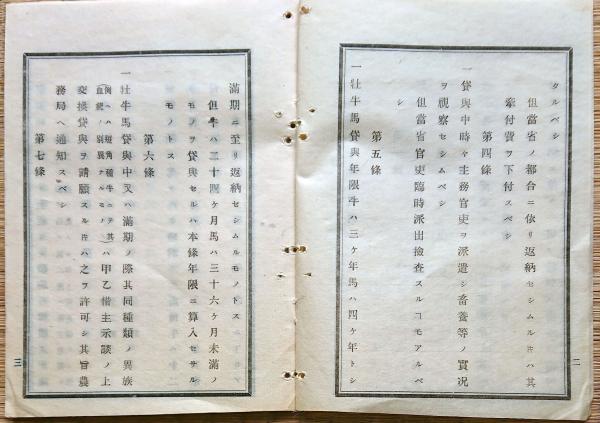 タルベシ
但當省ノ都合ニ依リ返納セシムル𪜈ハ其
牽付費ヲ下付スベシ
第四條
一 貸與中時々主務官吏ヲ派遣シ畜養等ノ實况
ヲ視察セシム
但當省官吏臨時派出撿査スルヿモアルベ
シ
第五條
一 牡牛馬貸與年限牛ハ三ケ年馬ハ四ケ年トシ
二
滿期ニ至リ返納セシムルモノトス
但牛ハ二十四ケ月馬ハ三十六ケ月未滿ノ
モノヲ貸與セルハ本條年限ニ算入セサル
モノトス
第六條
一 牡牛馬貸與中又ハ滿期ノ際其同種類ノ異族
(例ヘハ短角種牛ニテ其血統ノ別異ナルモノ)ハ甲乙借主示談ノ上
交換貸與ヲ請願スル𪜈ハ之ヲ許可シ其旨農
務局ヘ通知スベシ
第七條
三